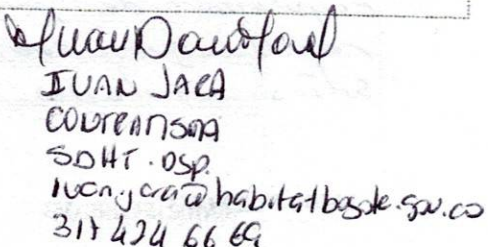 IVAN JARA
CONTRATISTA
SDHT. DSP.
ivan.jara@habitatbogota.gov.co
317 424 66 69